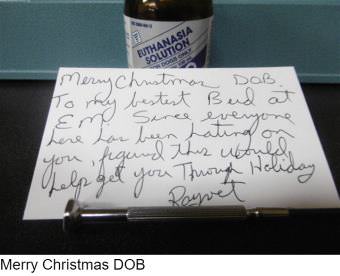 EUTHANASIA
SOLUTION
FOR DOGS ONLY
Merry Christmas DOB.
To my bestest Bud at
EM. Since everyone
here has been hating on
you, figured this would
help get you Through Holiday
Rayvet
Merry Christmas DOB